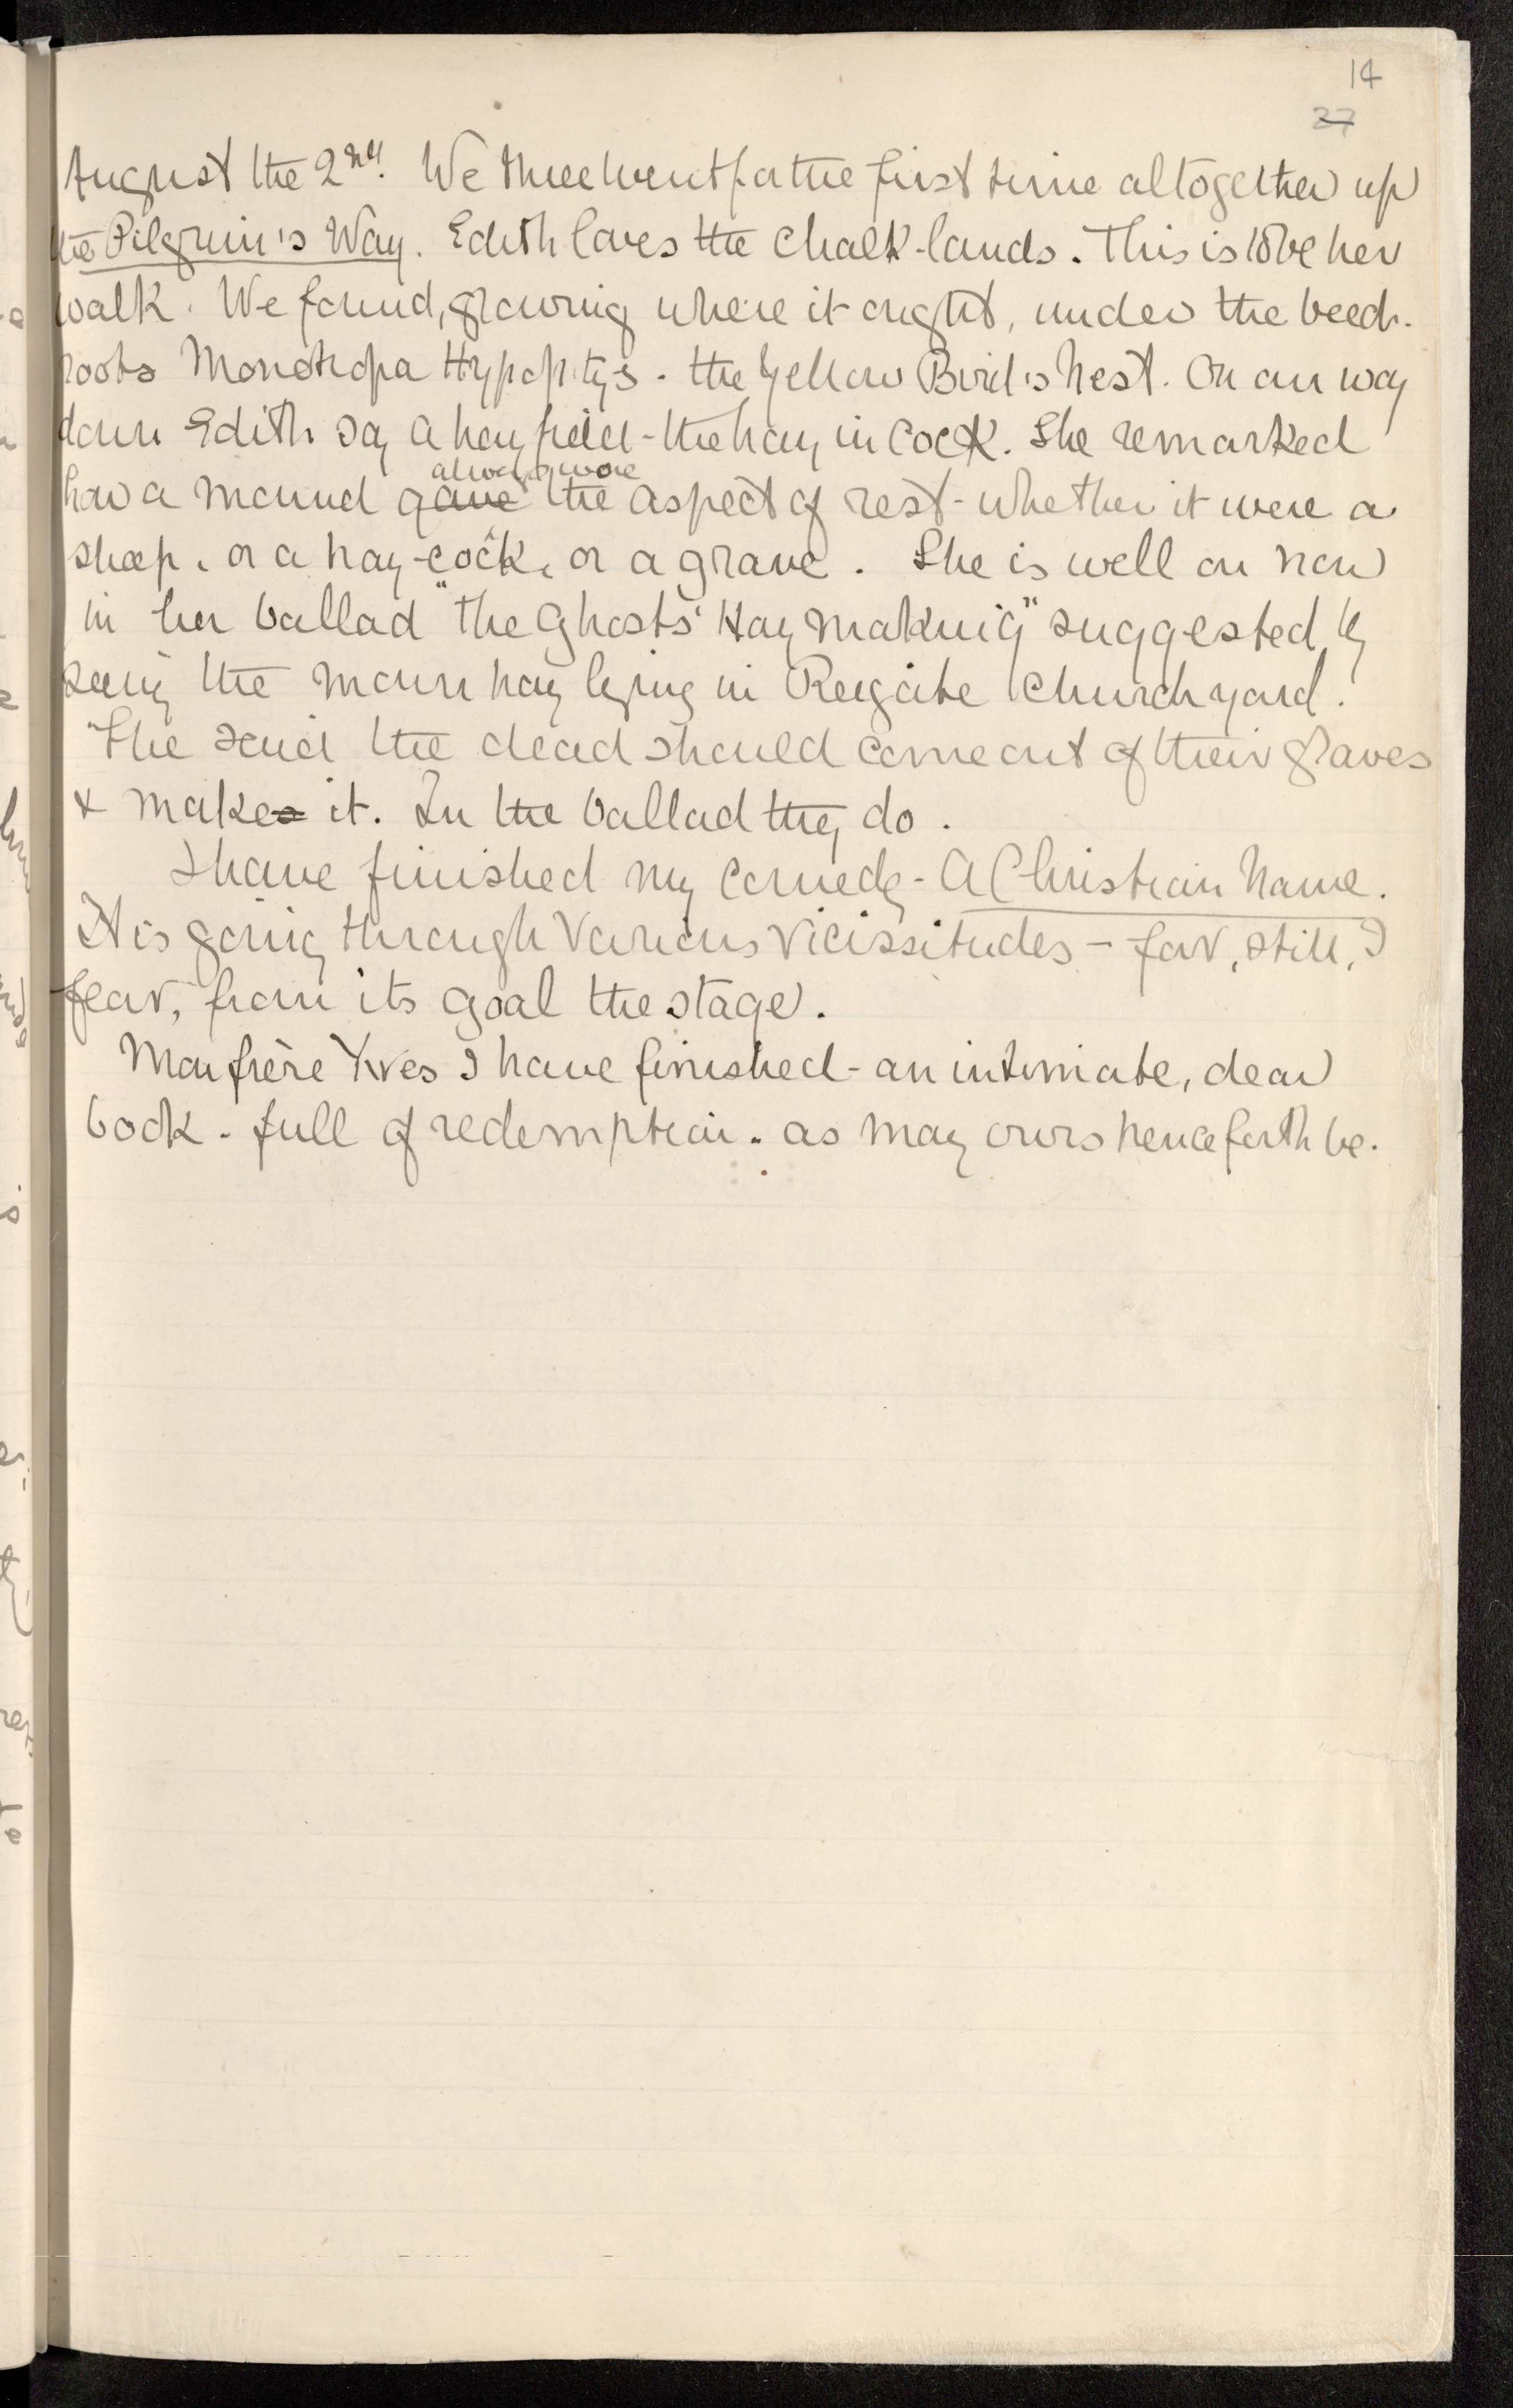 14
37
August the 2nd. We three went for the first time altogether up
the Pilgrim's Way. Edith loves the chalk-lands. This is to be her
walk. We found, growing where it ought, under the beech-
roots Monotropa Hypopitys - the Yellow Bird's Nest. On our way
down Edith saw a hay field - the hay in cock. She remarked
always wore
how a mound gave the aspect of rest - whether it were a
sheep, or a hay-cock, or a grave. She is well on now
in her ballad "the Ghosts' Haymaking" suggested by
seeing the mown hay lying in Reigate Churchyard.
She said the dead should come out of their graves
& makes it. In the ballad they do.
I have finished my comedy - A Christian Name.
It is going through various vicissitudes - far, still, I
fear, from its goal the stage.
Mon frère Yves I have finished - an intimate, dear
book - full of redemption - as may ours henceforth be.